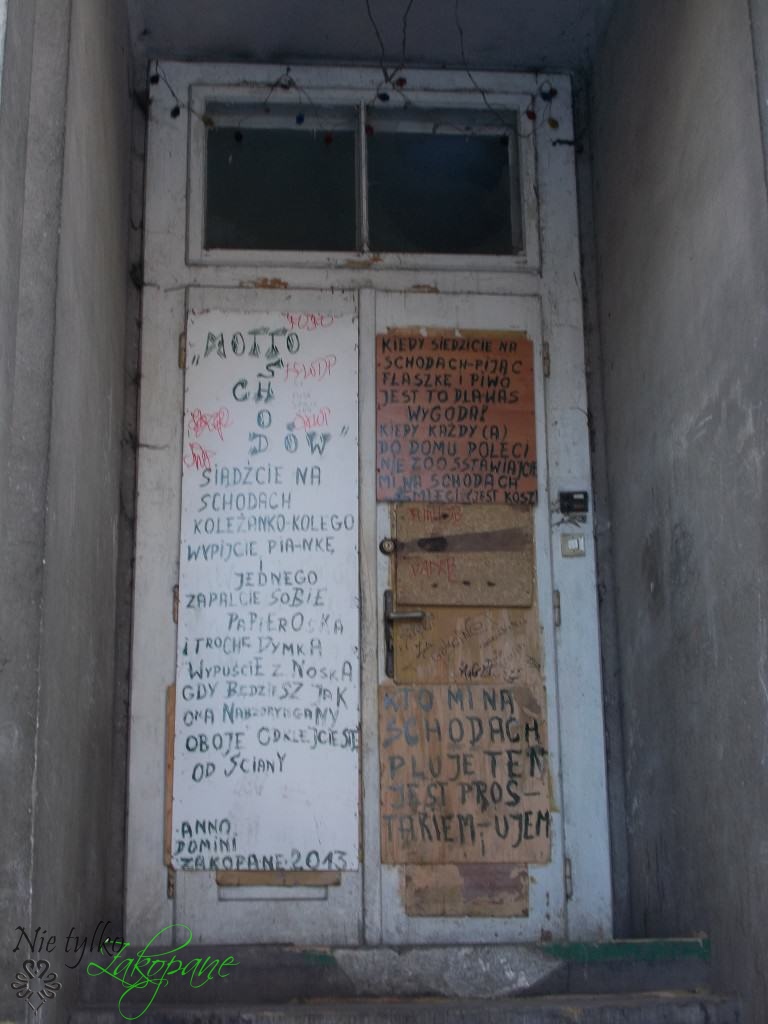 "MOTTO
S
CH
O
DÓW"
SIĄDŹCIE NA
SCHODACH
KOLEŻANKO-KOLEGO
WYPIJCIE PIA-NKĘ
I
JEDNEGO
ZAPALCIE SOBIE
PAPIEROSKA
I TROCHĘ DYMKA
WYPUŚCIE Z NOSKA
GDY BĘDZIESZ JAK
ONA
OBOJE ODKLEJCIE SIĘ
OD ŚCIANY
ANNO
DOMINI
ZAKOPANE·2013
KIEDY SIEDZICIE NA
SCHODACH-PIJĄC
FLASZKĘ I PIWO
JEST TO DLA WAS
WYGODA?
KIEDY KAŻDY(A)
DO DOMU POLECI
NIE ZOOSSTAWIAJCIE
MI NA SCHODACH
ŚMIECI (JEST KOSZ)
KTO MI NA
SCHODACH
PLUJE TEN
JEST PROS-
TAKIEM-UJEM
Nie tylko
Zakopane